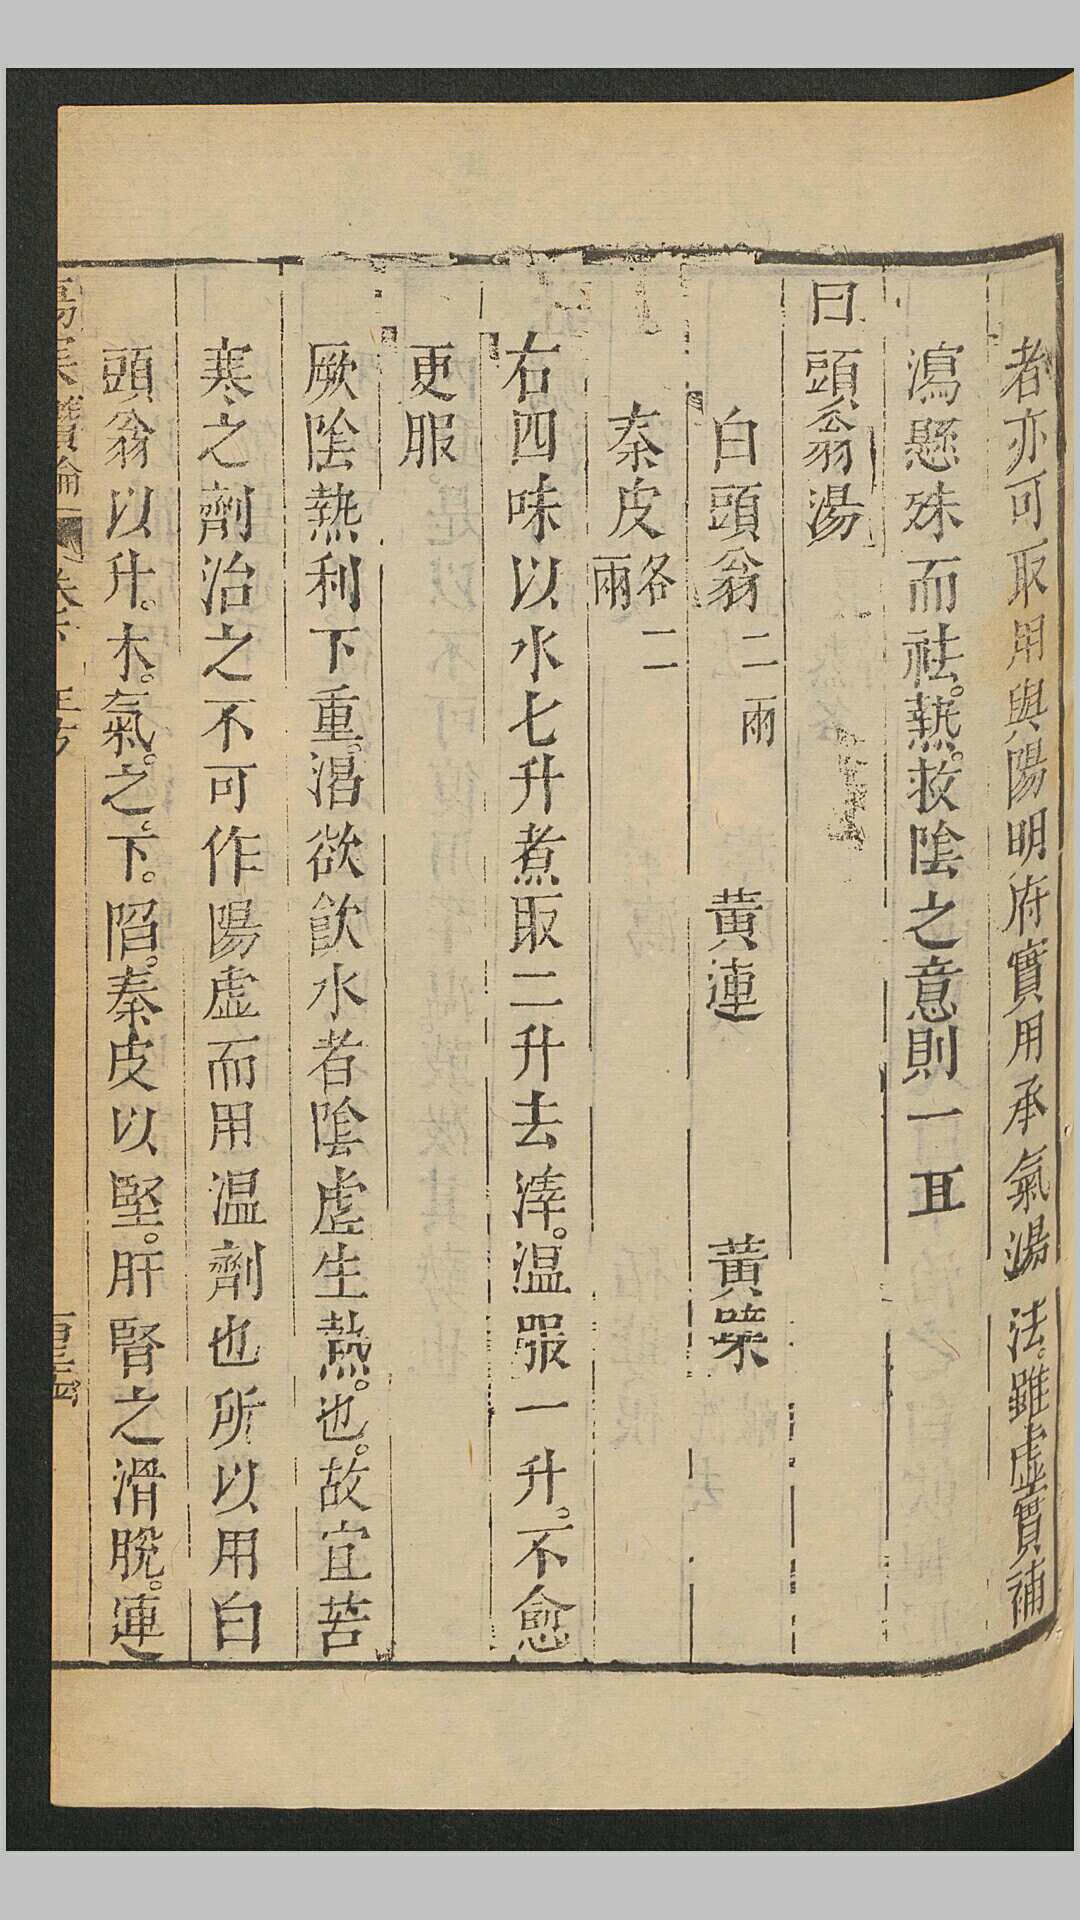 者亦可取用與陽明府實用承氣湯法。雖虛實補
瀉懸殊而祛。熱。救陰之意則一耳
白頭翁湯
白頭翁二兩 黃連 黃檗
秦皮各二兩
右四味以水七升煮取二升去滓。溫服一升。不愈
更服。
厥陰熱利下重。渴欲飲水者陰虛生熱。也。故宜苦
寒之劑治之不可作陽虛而用溫劑也所以用白
頭翁以升。木。氣。之。下。陷。秦皮以堅。肝腎之滑脫。連
傷寒纘論 卷下 正方